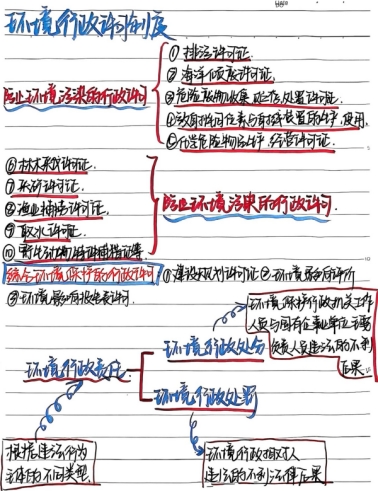 环境行政许可制度
防止环境污染的行政许可
① 排污许可证
② 海洋倾废许可证.
③危险废物收集贮存处置许可证.
④放射性同位素与射线装置的生产、使用.
⑤化学危险物生产、经营许可证.
⑥ 林木采伐许可证.
⑦ 采矿许可证.
⑧ 渔业捕捞许可证.
⑨ 取水许可证.
⑩ 野生动物特许捕猎证等
防止环境污染的行政许可.
综合环境保护的行政许可
①建设规划许可证 ②环境影响评价
③环境影响报告书许可.
环境行政责任
环境行政处分
环境保护行政机关工作
人员与国有企事业单位主要
负责人员违法的不利
后果.
环境行政处罚
根据违法行为
主体的不同类型
环境行政相对人
违法的不利法律后果